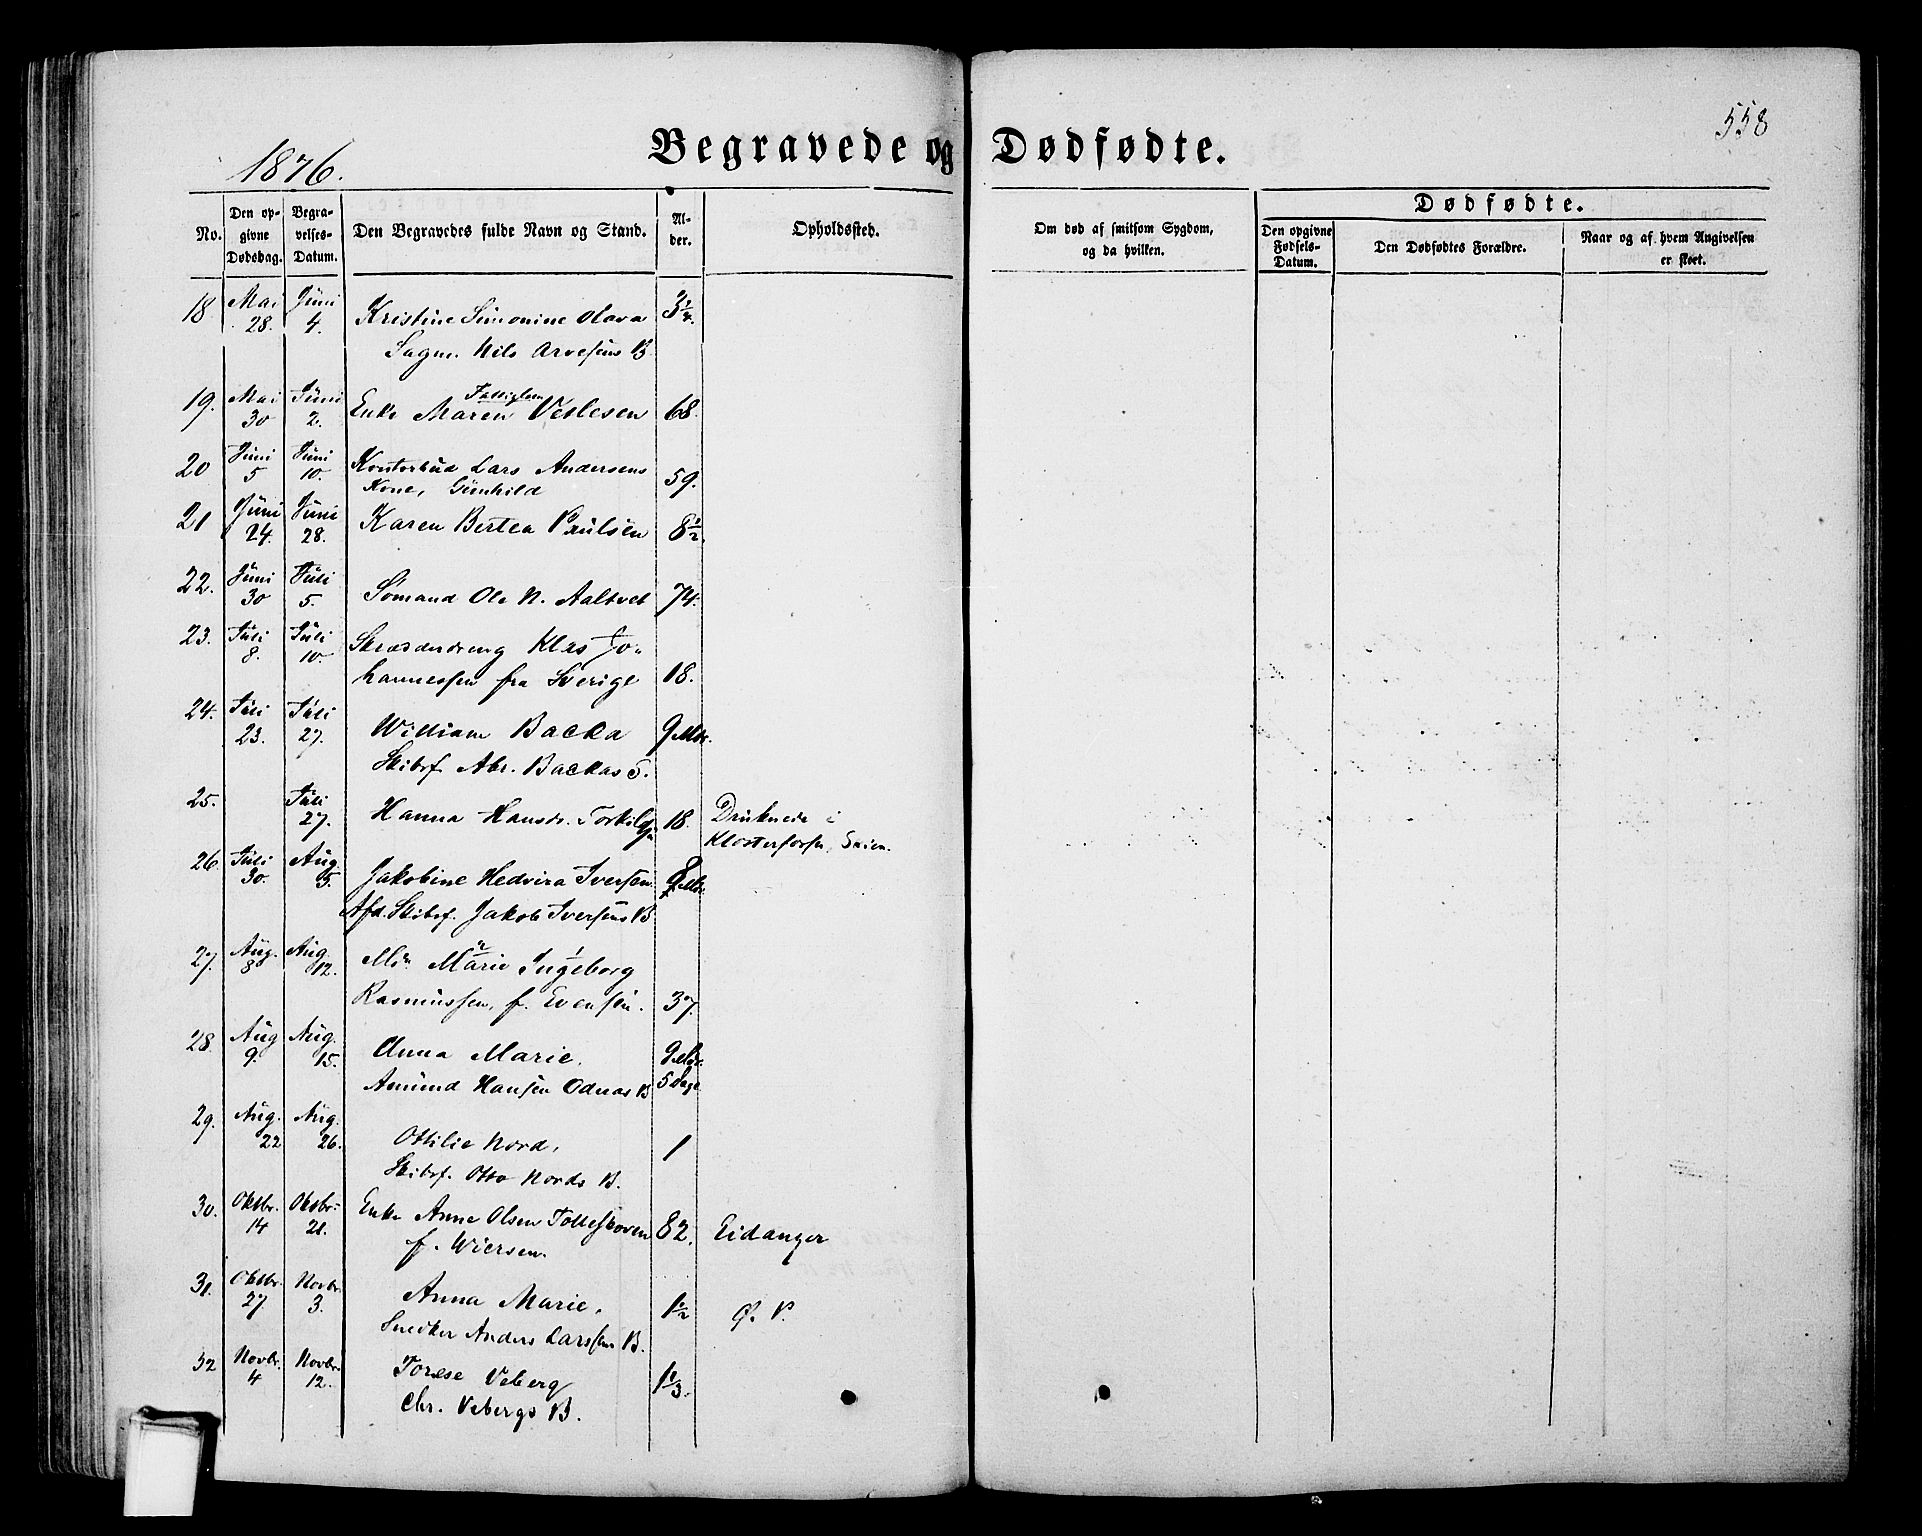 558
1876.
Begravede og Dødfødte.
No.
Den opgivne Dødsdag.
Begravelses-Datum.
Den Begravedes fulde Navn og Stand.
Alder.
Opholdssted.
Om død af smitsom Sygdom, og da hvilken.
Dødfødte.
Den opgivne Fødsels-Datum.
Den Dødfødtes Forældre.
Naar og af hvem Angivelsen er skeet.
18 Mai 28. Juni 4. Kristine Simonine Olava 3 1/4.
Sagm. Nils Arvesens B.
Fattiglem
19. Mai 30 Juni 2. Enke Maren Veslesen 68.
20 Juni 5 Juni 10. Kontorbud Lars Andersens
Kone, Gunhild 59.
21 Juni 24. Juni 28. Karen Bertea Paulsen 8 1/2.
22. Juni 30 Juli 5. Sømand Ole N. Aaltvet 74.
23. Juli 8. Juli 10. Skrædderdreng Klas Jo-
hannessen fra Sverige 18.
24. Juli 23. Juli 27. William Backa 9 Mdr.
Skibsf. Abr. Backas S.
25. Juli 27. Hanna Hansdr. Torkils 18. Druknede i
Klosterfossen, Skien.
26 Juli 30. Aug. 5. Jakobine Hedvira Iversen Mdr.
Afd. Skibsf. Jakob Iversens B.
27. Aug. 8 Aug. 12. Marie Ingeborg
Rasmussen, f. Evensen. 37.
28. Aug 9. Aug. 15. Anna Marie, 9 Mdr.
Amund Hansen Odnas B 5 Dage
29. Aug. 22 Aug. 26. Ottilie Nord, 1
Skibsf. Otto Nords B.
30. Oktbr. 14 Oktbr. 21. Enke Anne Olsen Tolleskoven 82. Eidanger
f. Wiersen.
31. Oktbr. 27 Novbr. 3. Anna Marie, 1 1/2 Ø. P.
Snedker Anders Larssens B.
32 Novbr. 4 Novbr. 12. Torese Veberg 1 1/3.
Chr. Vebergs B.